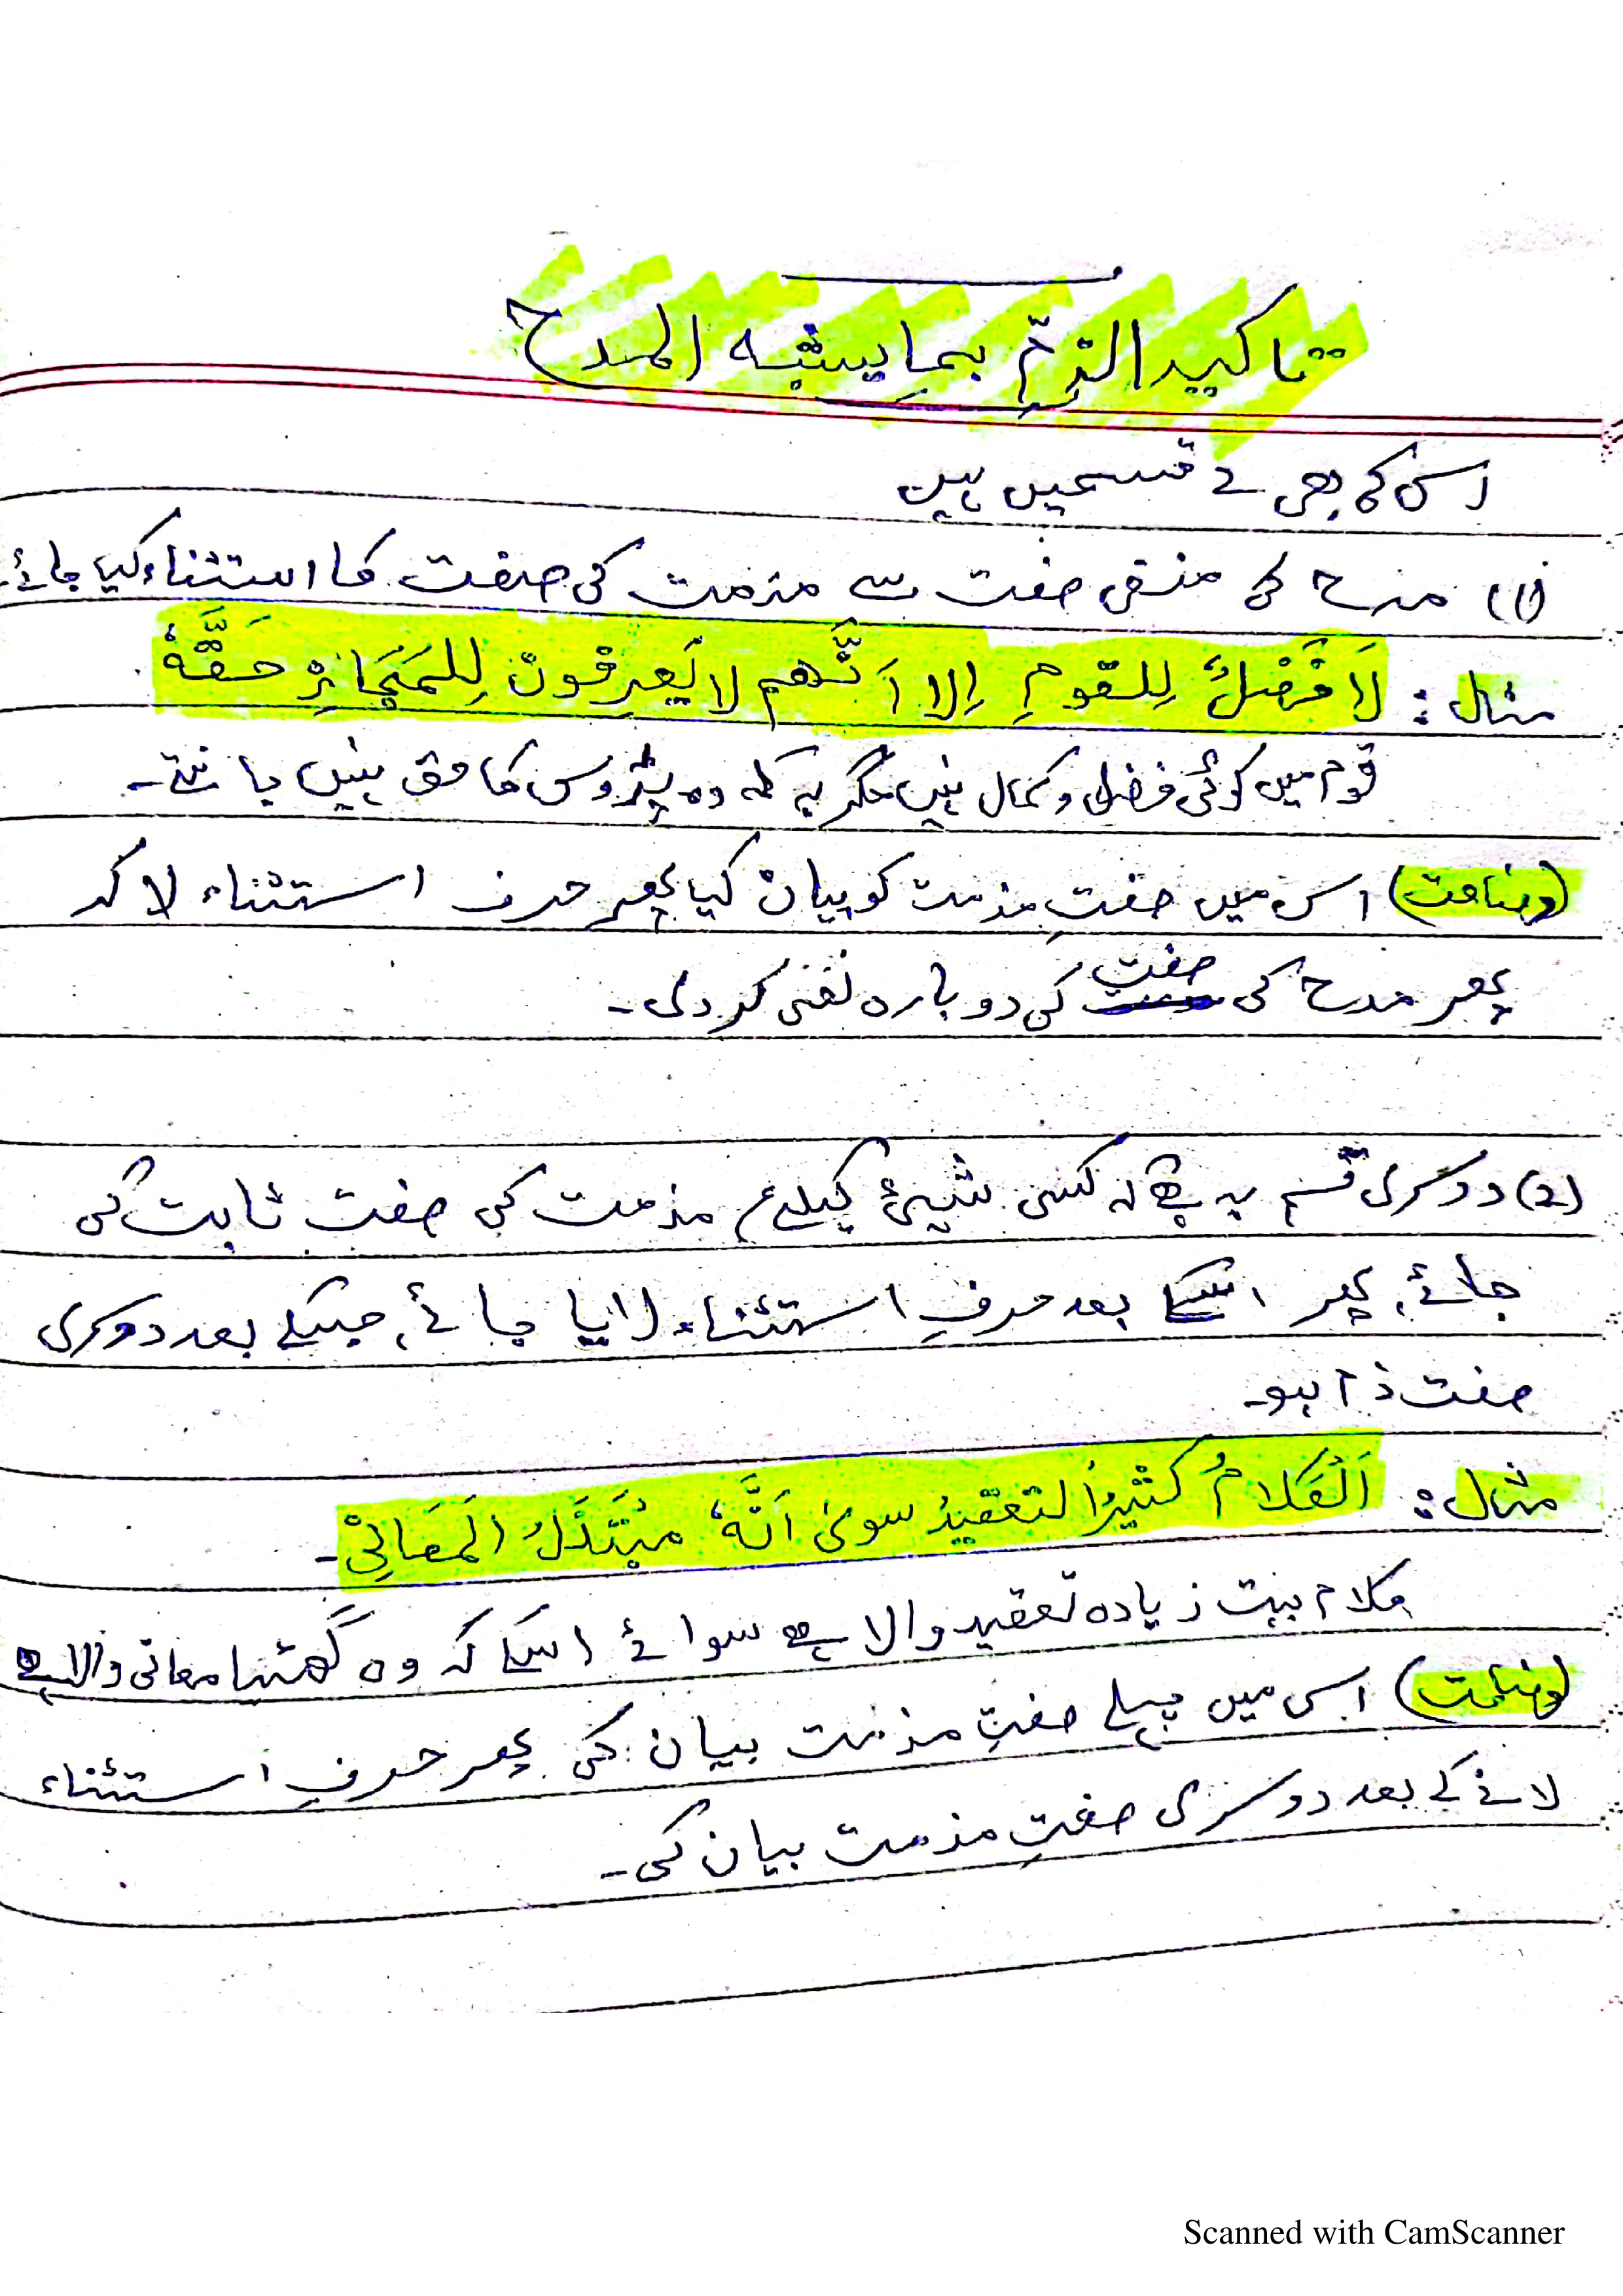 تاکید الذمّ بما یشبہ المدح
اس کی بھی 2 قسمیں ہیں
(1) مدح کی منفی صفت سے مذمت کی صفت کا استثناء کیا جائے۔
مثال : لَا فَضْلَ لِلقومِ اِلا اَنَّھم لا یَعرِفونَ لِلجَارِ حَقَّہٗ
قوم میں کوئی فضل و کمال نہیں مگر یہ کہ وہ پڑوس کا حق نہیں جانتے۔
(وضاحت) اس میں صفتِ مذمت کو بیان کیا پھر حرف استثناء لا کر
پھر مدح کی صفت کی دوبارہ نفی کر دی۔
(2) دوسری قسم یہ ہے کہ کسی شیئ کیلئے مذمت کی صفت ثابت کی
جائے، پھر اسکے بعد حرفِ استثناء لایا جائے، جسکے بعد دوسری
صفت ذم ہو۔
مثال : اَلْکَلامُ کثیرُ التعقیدِ سویٰ اَنَّہٗ مُبْتَذَلُ المَعَانِیْ۔
کلام بہت زیادہ تعقید والا ہے سوائے اسکے کہ وہ گھٹیا معانی والا ہے
(وضاحت) اس میں پہلے صفتِ مذمت بیان کی پھر حرفِ استثناء
لانے کے بعد دوسری صفتِ مذمت بیان کی۔
Scanned with CamScanner